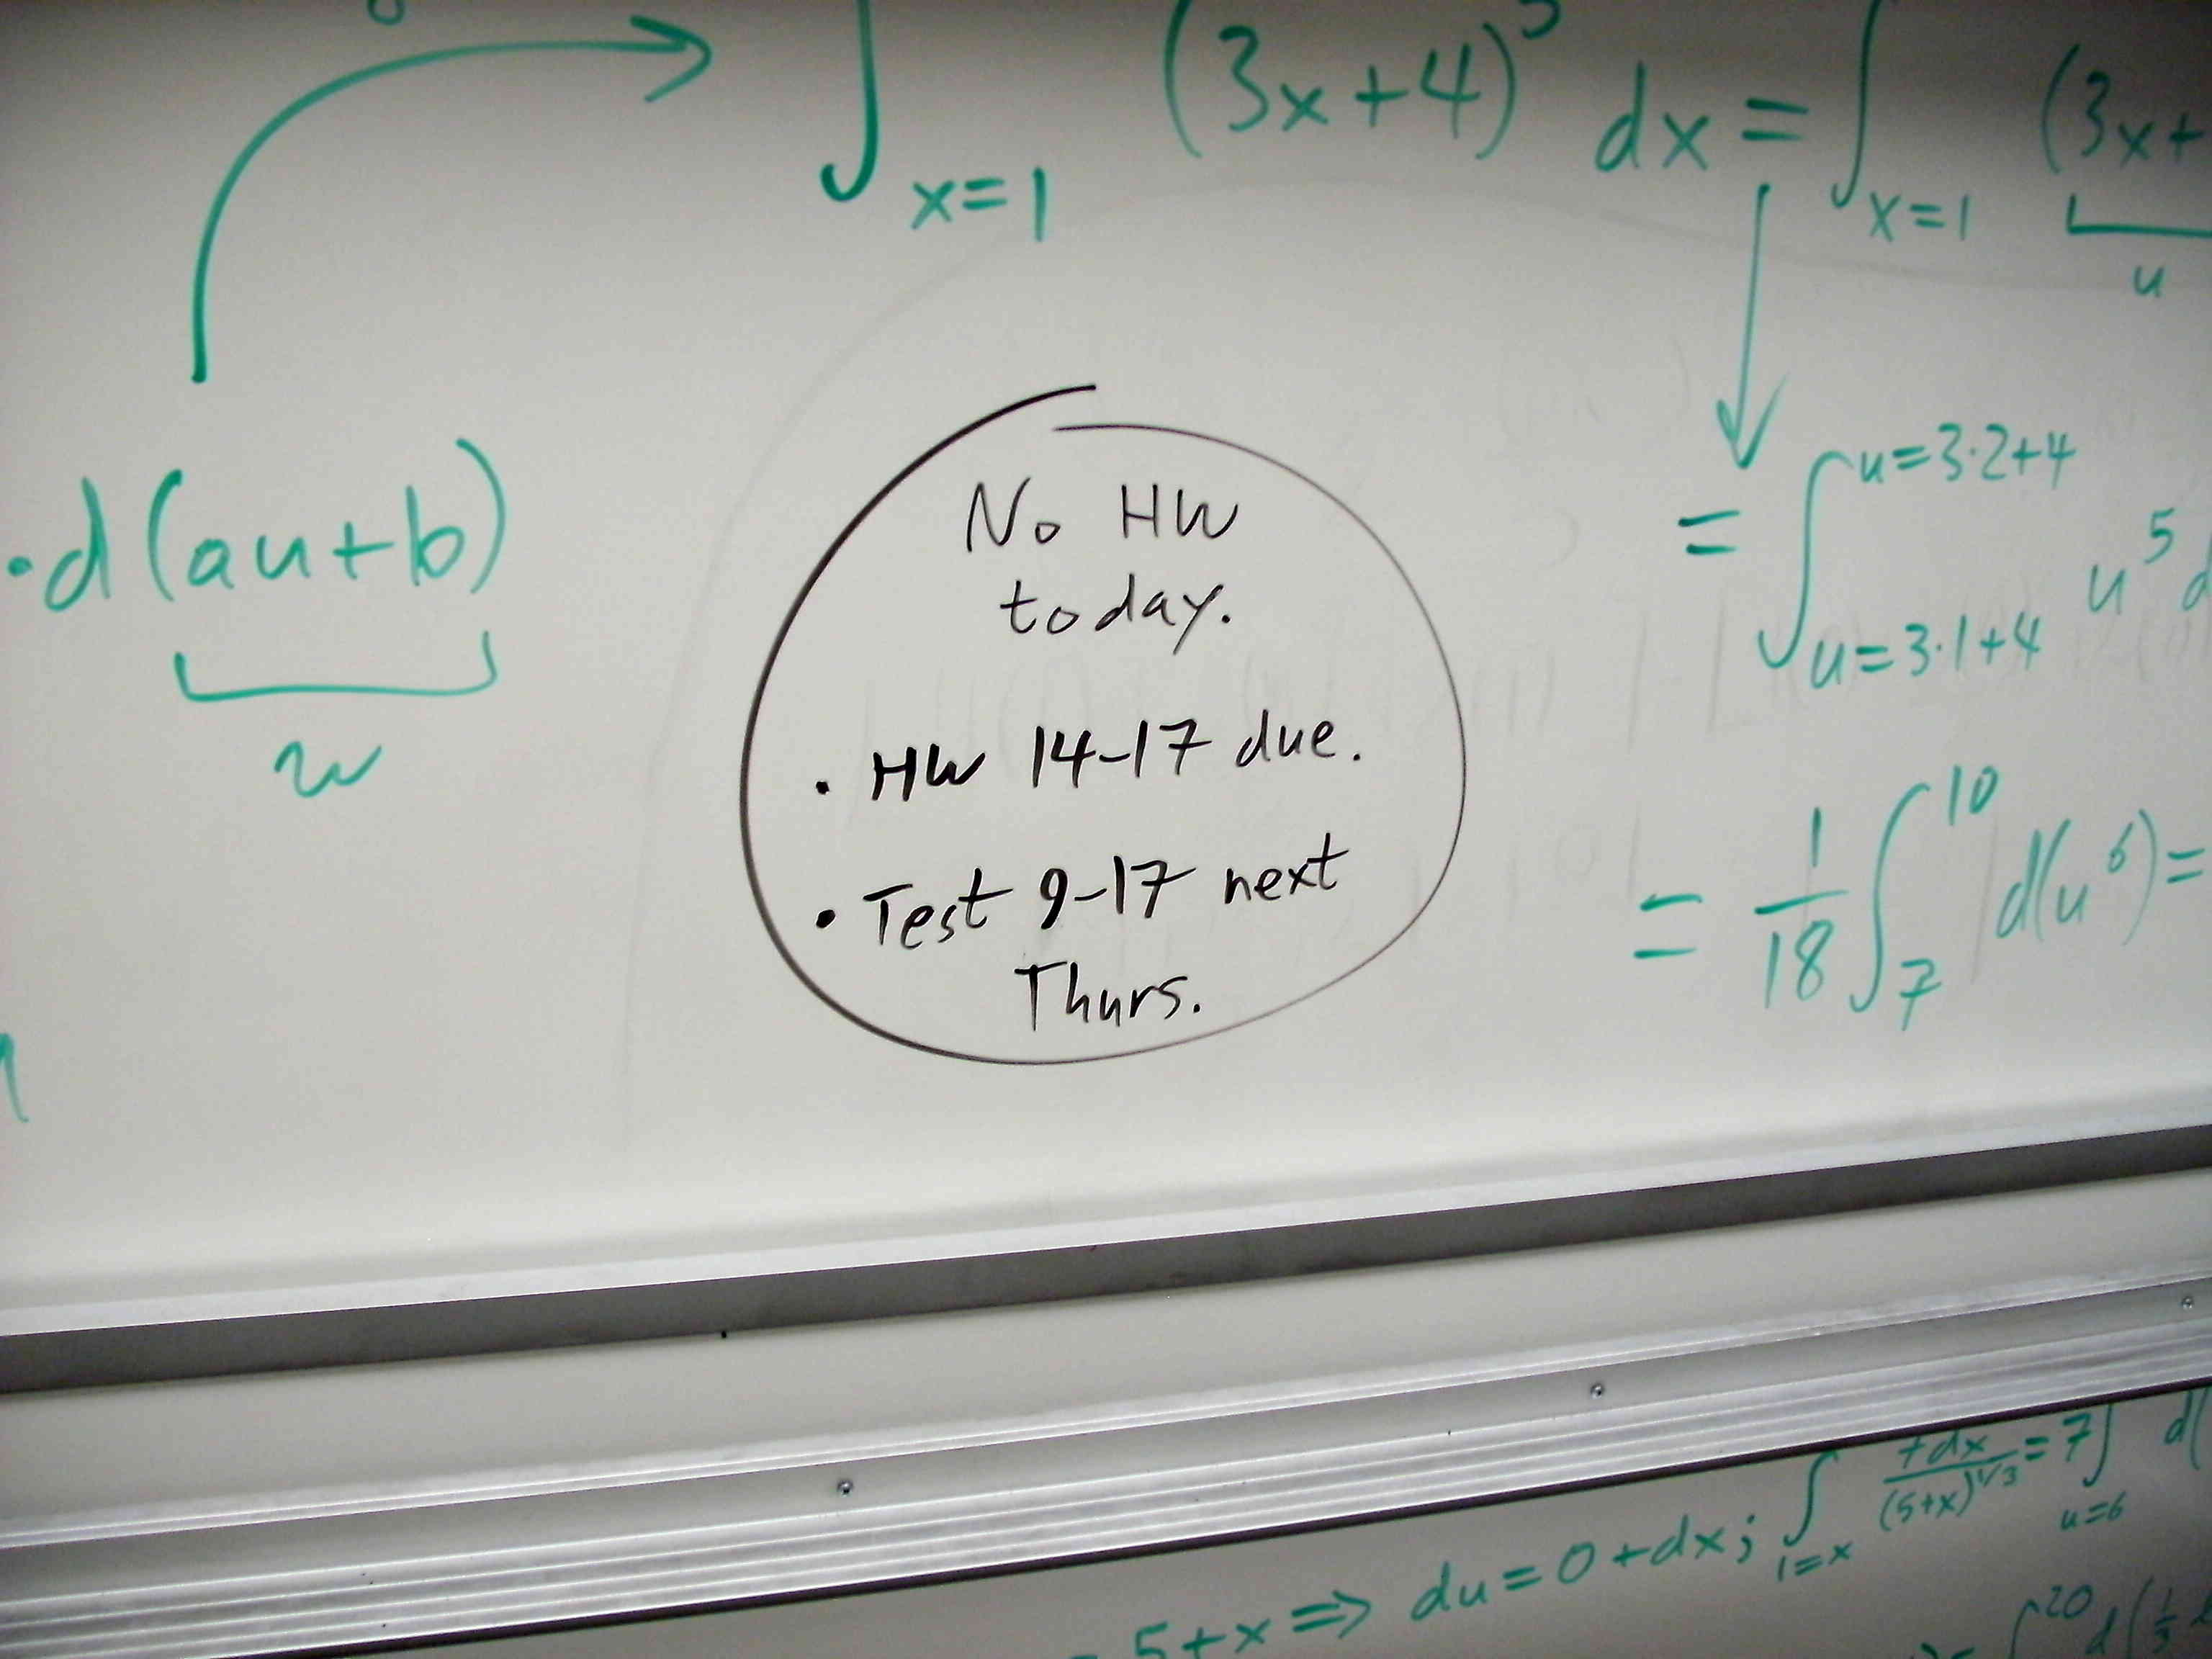 ∫ x=1 (3x+4)⁵ dx = ∫ x=1 (3x+
u
·d(au+b)
w
No HW
today.
· HW 14-17 due.
· Test 9-17 next
Thurs.
= ∫ u=3·1+4 u=3·2+4 u⁵ d
= 1/18 ∫ 7 10 d(u⁶) =
5+x ⇒ du = 0+dx; ∫ 1=x 7dx/(5+x)^1/3 = 7∫ u=6 d(
= ∫ 20 d(1/3